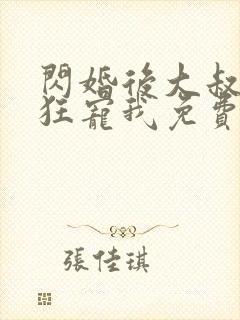 閃婚後大叔
狂寵我免費
張佳琪